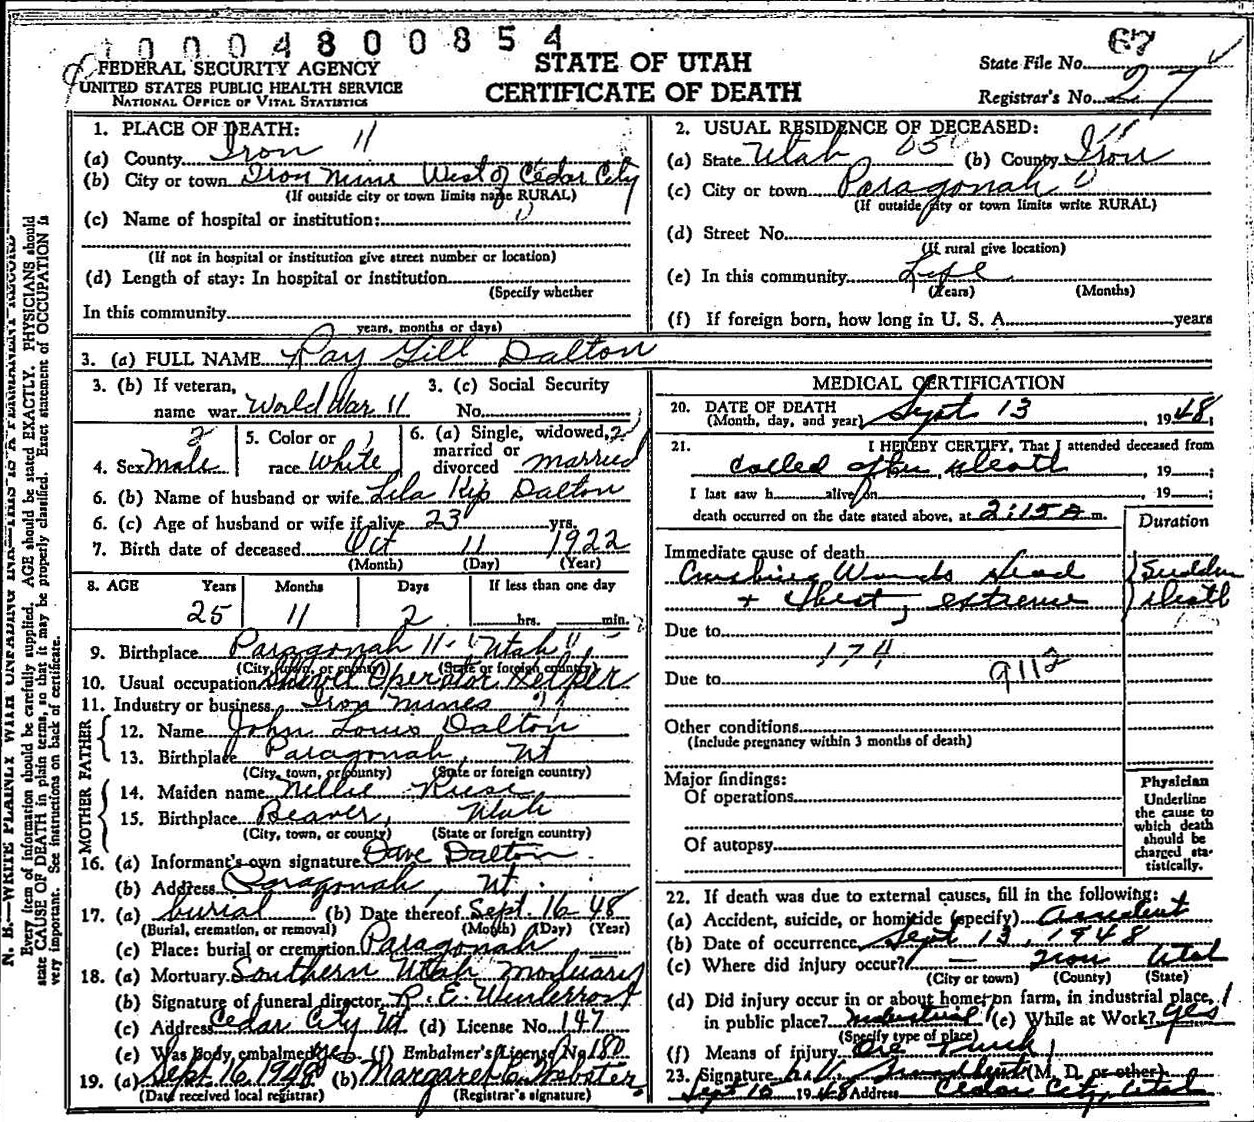 1 0 0 0 4 8 0 0 8 5 4
FEDERAL SECURITY AGENCY
UNITED STATES PUBLIC HEALTH SERVICE
NATIONAL OFFICE OF VITAL STATISTICS
STATE OF UTAH
CERTIFICATE OF DEATH
67
State File No.
Registrar's No. 27
N. B.—WRITE PLAINLY WITH UNFADING INK—THIS IS A PERMANENT RECORD
Every item of information should be carefully supplied. AGE should be stated EXACTLY. PHYSICIANS should
state CAUSE OF DEATH in plain terms, so that it may be properly classified. Exact statement of OCCUPATION is
very important. See instructions on back of certificate.
1. PLACE OF DEATH: 11
(a) County Iron
(b) City or town Iron Mine West of Cedar City
(If outside city or town limits name RURAL)
(c) Name of hospital or institution:
(If not in hospital or institution give street number or location)
(d) Length of stay: In hospital or institution
(Specify whether
In this community
years, months or days)
2. USUAL RESIDENCE OF DECEASED:
(a) State Utah (b) County Iron
(c) City or town Paragonah
(If outside city or town limits write RURAL)
(d) Street No.
(If rural give location)
(e) In this community Life
(Years) (Months)
(f) If foreign born, how long in U. S. A. years
3. (a) FULL NAME Ray Gill Dalton
3. (b) If veteran,
name war World War II
3. (c) Social Security
No.
4. Sex Male
5. Color or
race White
6. (a) Single, widowed, 2
married or
divorced married
6. (b) Name of husband or wife Lila Kip Dalton
6. (c) Age of husband or wife if alive 23 yrs.
7. Birth date of deceased Oct 11 1922
(Month) (Day) (Year)
8. AGE Years Months Days If less than one day
25 11 2 hrs. min.
9. Birthplace Paragonah Utah
(City, town, or county) (State or foreign country)
10. Usual occupation Shovel Operator Helper
11. Industry or business Iron Mines
FATHER
12. Name John Louis Dalton
13. Birthplace Paragonah, Ut
(City, town, or county) (State or foreign country)
MOTHER
14. Maiden name Nellie
15. Birthplace Beaver, Utah
(City, town, or county) (State or foreign country)
16. (a) Informant's own signature Dave Dalton
(b) Address Paragonah, Ut.
17. (a) burial (b) Date thereof Sept. 16 48
(Burial, cremation, or removal) (Month) (Day) (Year)
(c) Place: burial or cremation Paragonah
18. (a) Mortuary Southern Utah Mortuary
(b) Signature of funeral director R. E.
(c) Address Cedar City Ut (d) License No. 147
(e) Was body embalmed yes (f) Embalmer's License No. 180
19. (a) Sept 16 1948 (b) Margaret C. Webster
(Date received local registrar) (Registrar's signature)
MEDICAL CERTIFICATION
20. DATE OF DEATH
(Month, day, and year) Sept 13, 1948;
21. I HEREBY CERTIFY, That I attended deceased from
Called after death, 19 ;
I last saw h alive on , 19 ;
death occurred on the date stated above, at 2:15 A m.
Duration
Immediate cause of death
Crushing Wounds Head Sudden
+ Chest, extreme death
Due to
174
Due to 9112
Other conditions
(Include pregnancy within 3 months of death)
Major findings:
Of operations
Of autopsy
Physician
Underline
the cause to
which death
should be
charged sta-
tistically.
22. If death was due to external causes, fill in the following:
(a) Accident, suicide, or homicide (specify) Accident
(b) Date of occurrence Sept 13, 1948
(c) Where did injury occur? — Iron Utah
(City or town) (County) (State)
(d) Did injury occur in or about home, on farm, in industrial place,
in public place? Industrial (e) While at Work? yes
(Specify type of place)
(f) Means of injury Ore Truck
23. Signature (M. D. or other)
Sept 1948 Address Cedar City, Utah